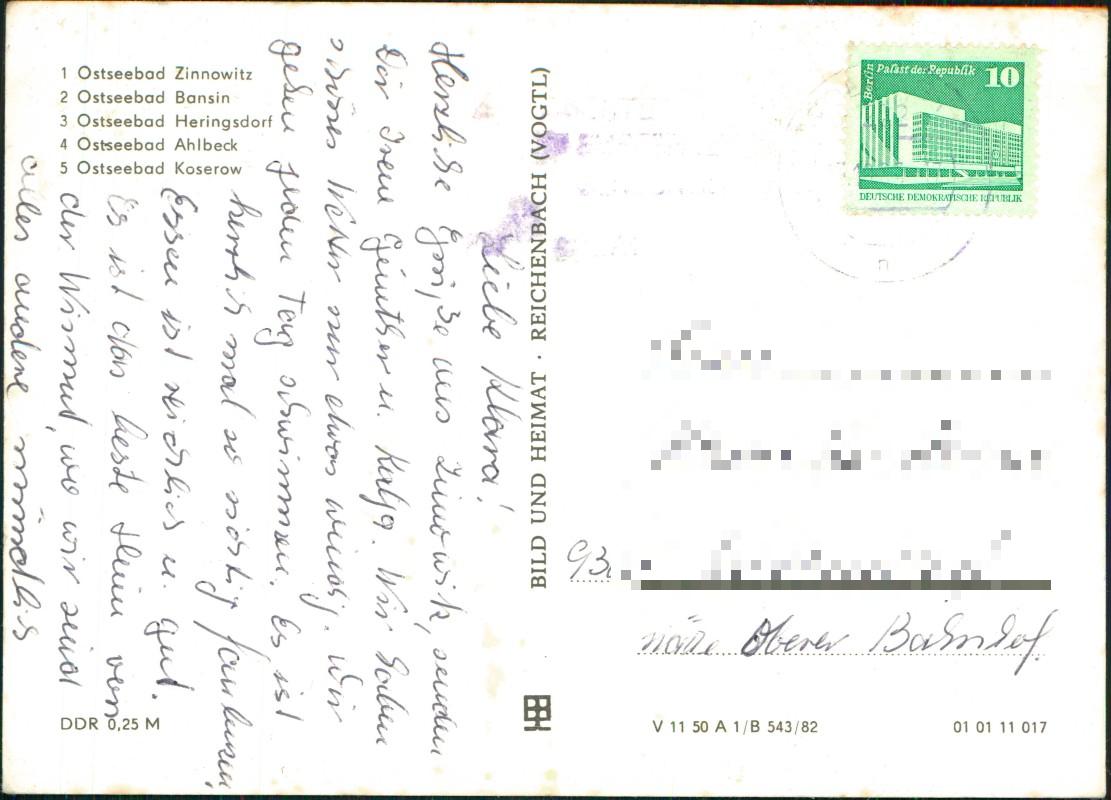 1 Ostseebad Zinnowitz
2 Ostseebad Bansin
3 Ostseebad Heringsdorf
4 Ostseebad Ahlbeck
5 Ostseebad Koserow
Liebe Klara!
Herzliche Grüße aus Zinnowitz, senden
Dir Irene Günther u. Katja. Wir haben
schönes Wetter nur etwas windig. Wir
gehen jeden Tag schwimmen. Es ist
herrlich mal so richtig faulenzen,
Essen ist reichlich u. gut.
Es ist das beste Heim von
der Wismut, wo wir sind
alles andere mündlich
DDR 0,25 M
BILD UND HEIMAT · REICHENBACH (VOGTL)
Berlin
Palast der Republik
10
DEUTSCHE DEMOKRATISCHE REPUBLIK
Oberer Bahnhof
V 11 50 A 1/B 543/82
01 01 11 017